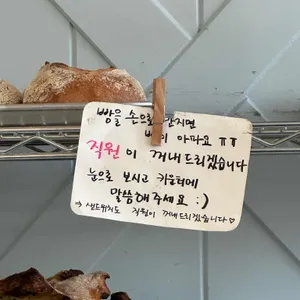 빵을 손으로 만지면
빵이 아파요 ㅠㅠ
직원이 꺼내드리겠습니다
눈으로 보시고 카운터에
말씀해주세요 :)
→ 샌드위치도 직원이 꺼내드리겠습니다♡